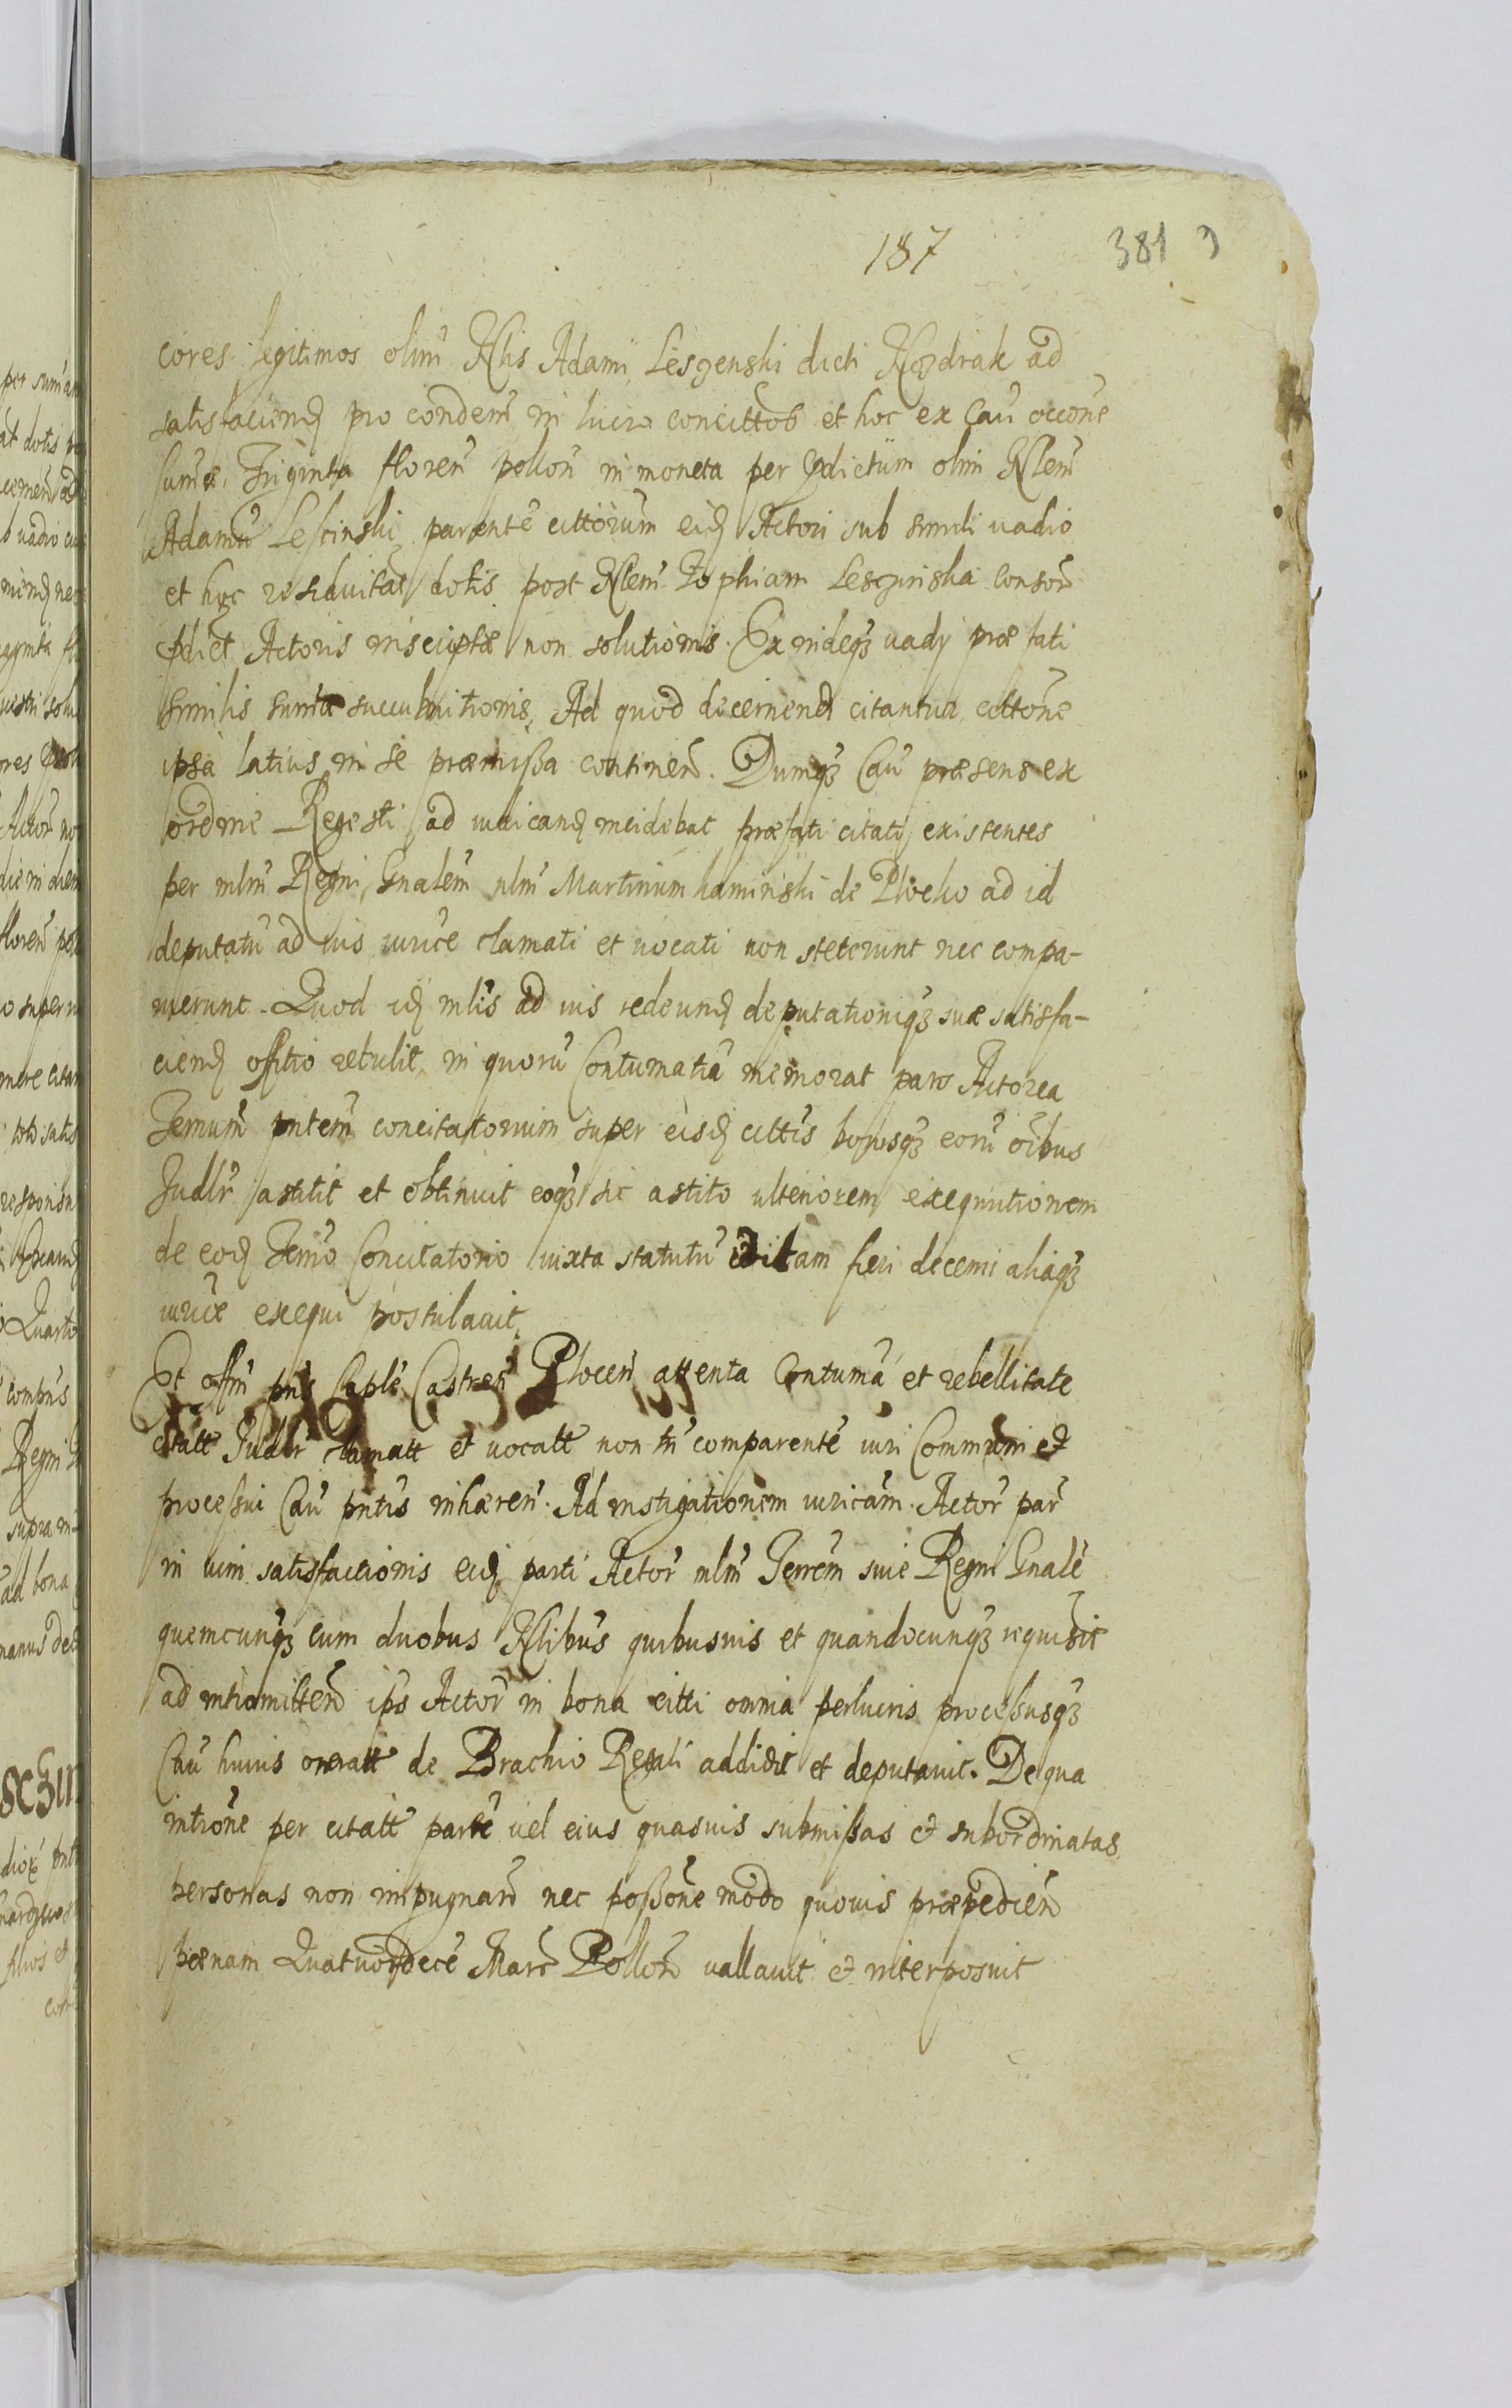 187 381
cores legitimos olim Nlis Adami Leszenski dicti Nozdrak ad
satisfaciend pro condemn in lucro concittos et hoc ex Cau occone
sumae Triginta floren pollon in moneta per pdictum olim Nlem
Adamu Lescinski parente cittorum eid Actori sub simili vadio
et hoc residuitat dotis post Nlem Zophiam Leszinska consor
pdict Actoris inscriptae non solutionis. Exindeqz vady praefati
similis sumae succubitionis, Ad quod decernend citantur cittone
ipsa latius in se praemissa continen. Dumqz Cau praesens ex
ordine Regesti ad iudicand incidebat praefati citati existentes
per mlm Regni Gnalem nlm Martinum kaminski de Plocko ad id
deputatu ad ius iurice clamati et vocati non steterunt nec compa-
ruerunt. Quod id mlis ad ius redeund deputationiqz suae satisfa-
ciend offitio retulit, in quoru Contumatia memorat pars Actorea
Termum pntem concitatorium super eisd cittis bonisqz eoru oibus
Judlr astitit et obtinuit eoqz sic astito ulteriorem exequutionem
de eod Termo Concitatorio iuxta statutu editam fieri decerni aliaqz
iurice exequi postulavit.
Et offm pns Caple Castren Plocen attenta Contuma et rebellitate
citatt Judlr clamatt et vocatt non tn comparente iuri Communi et
processui Cau pntis inhaeren. Ad instigationem iuricam Actor par
in vim satisfactionis eid parti Actor mlm Terrem sive Regni Gnale
quemcunqz cum duobus Nlibus quibusuis et quandocunqz requisit
ad intromitten ips Actor in bona citti omnia per lucris processusqz
Cau huius oneratt de Brachio Regali addidit et deputavit. De qua
introne per citatt parte uel eius quasuis submissas et subordinatas
personas non impugnan nec possone modo quouis praepedien
paenam Quatuordece Marc Pollon vallavit et interposuit